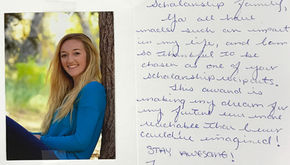 scholarship family,
Ya'll have
made such an impact
in my life, and I am
so thankful to be
chosen as one of your
scholarship recipients.
This award is
making my dream for
my future seem more
reachable then I ever
could've imagined!
STAY AWESOME!